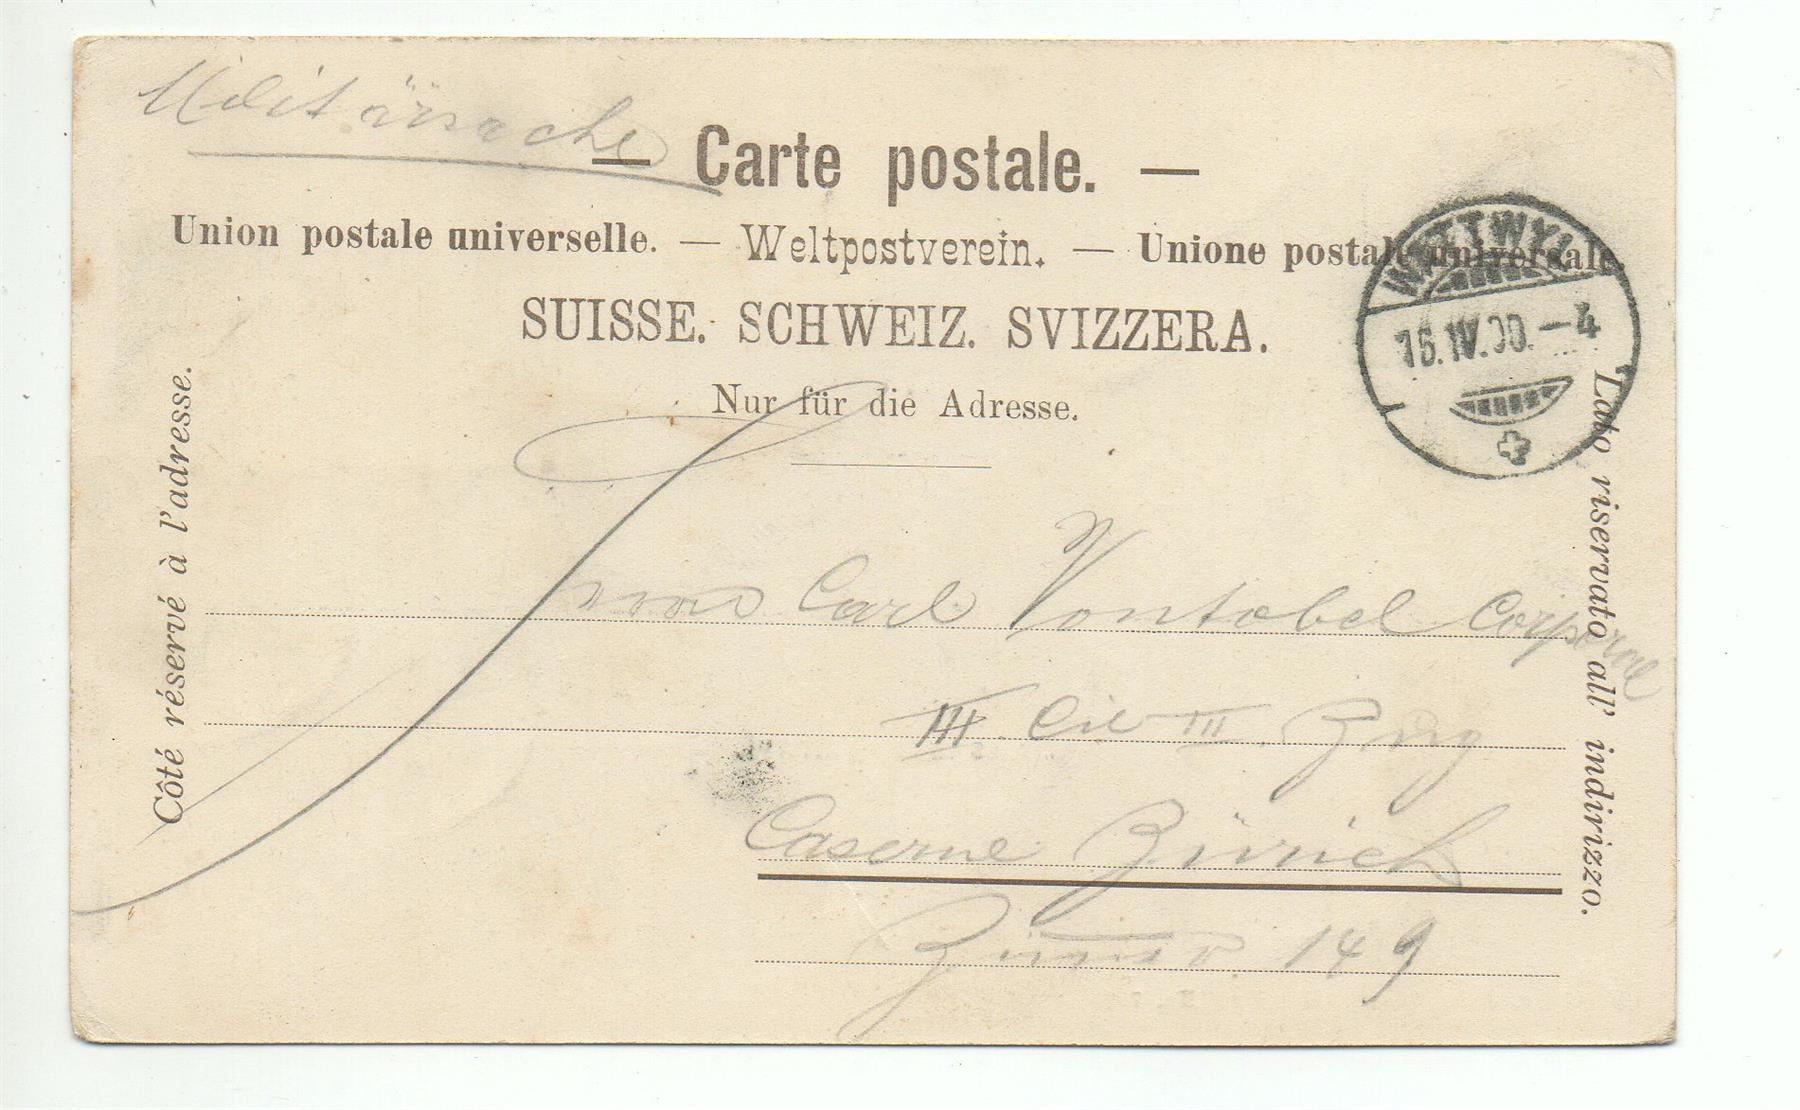 Militärsache
— Carte postale. —
Union postale universelle. — Weltpostverein. — Unione postale universale.
SUISSE. SCHWEIZ. SVIZZERA.
Nur für die Adresse.
WATTWYL
16.IV.00.—4
Côté réservé à l'adresse.
Lato riservato all' indirizzo.
Carl Vontobel Corporal
III. III. Zug
Caserne Zürich
149